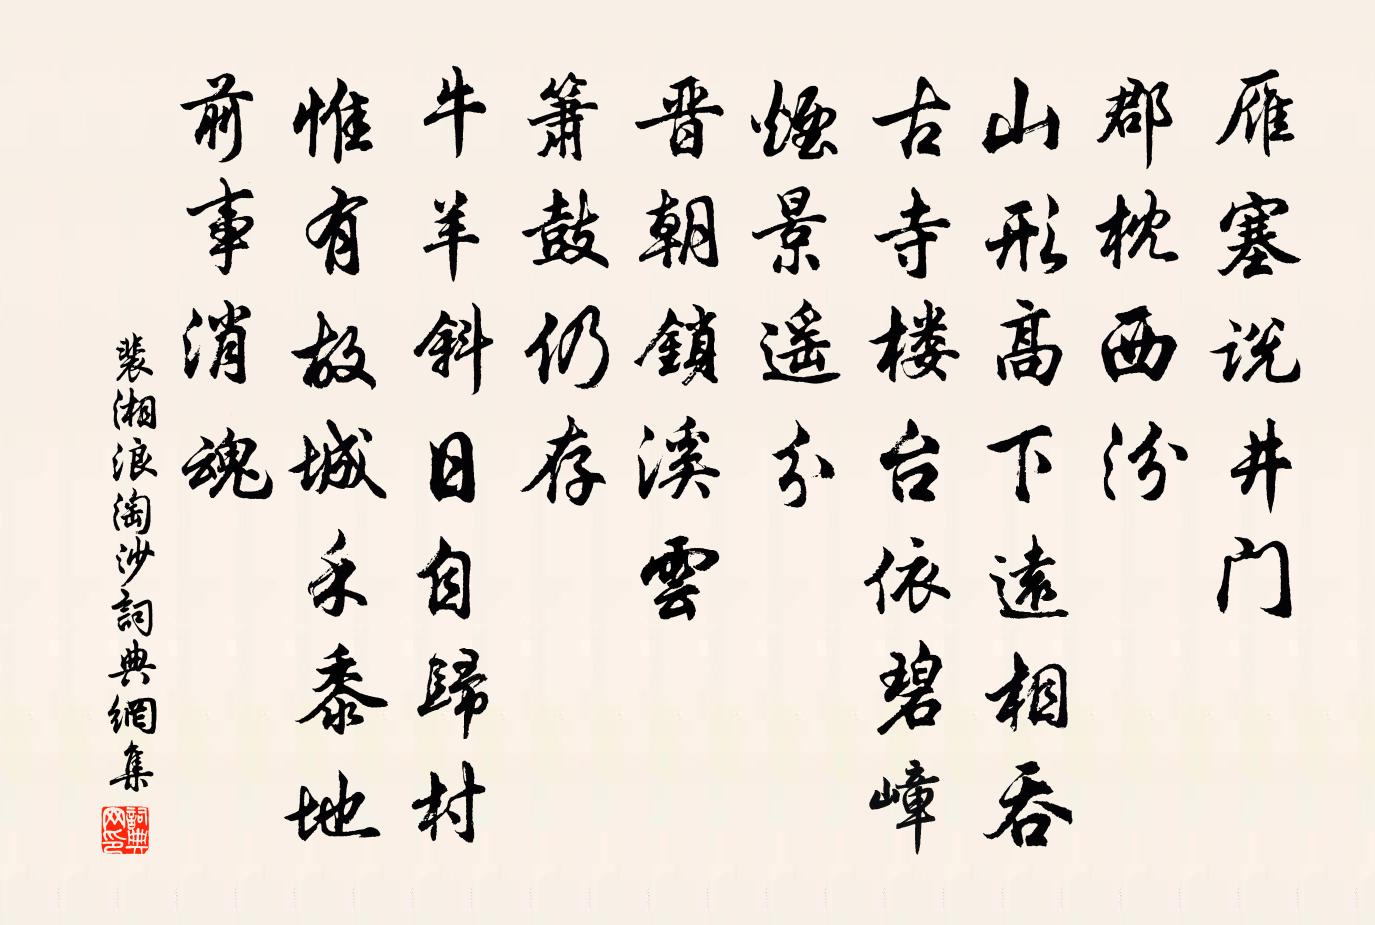 雁塞说井门
郡枕西汾
山形高下远相吞
古寺楼台依碧嶂
煙景遥分
晋朝鎖溪雲
箫鼓仍存
牛羊斜日自歸村
惟有故城禾黍地
前事消魂
裴湘浪淘沙詞典網集
詞典网印